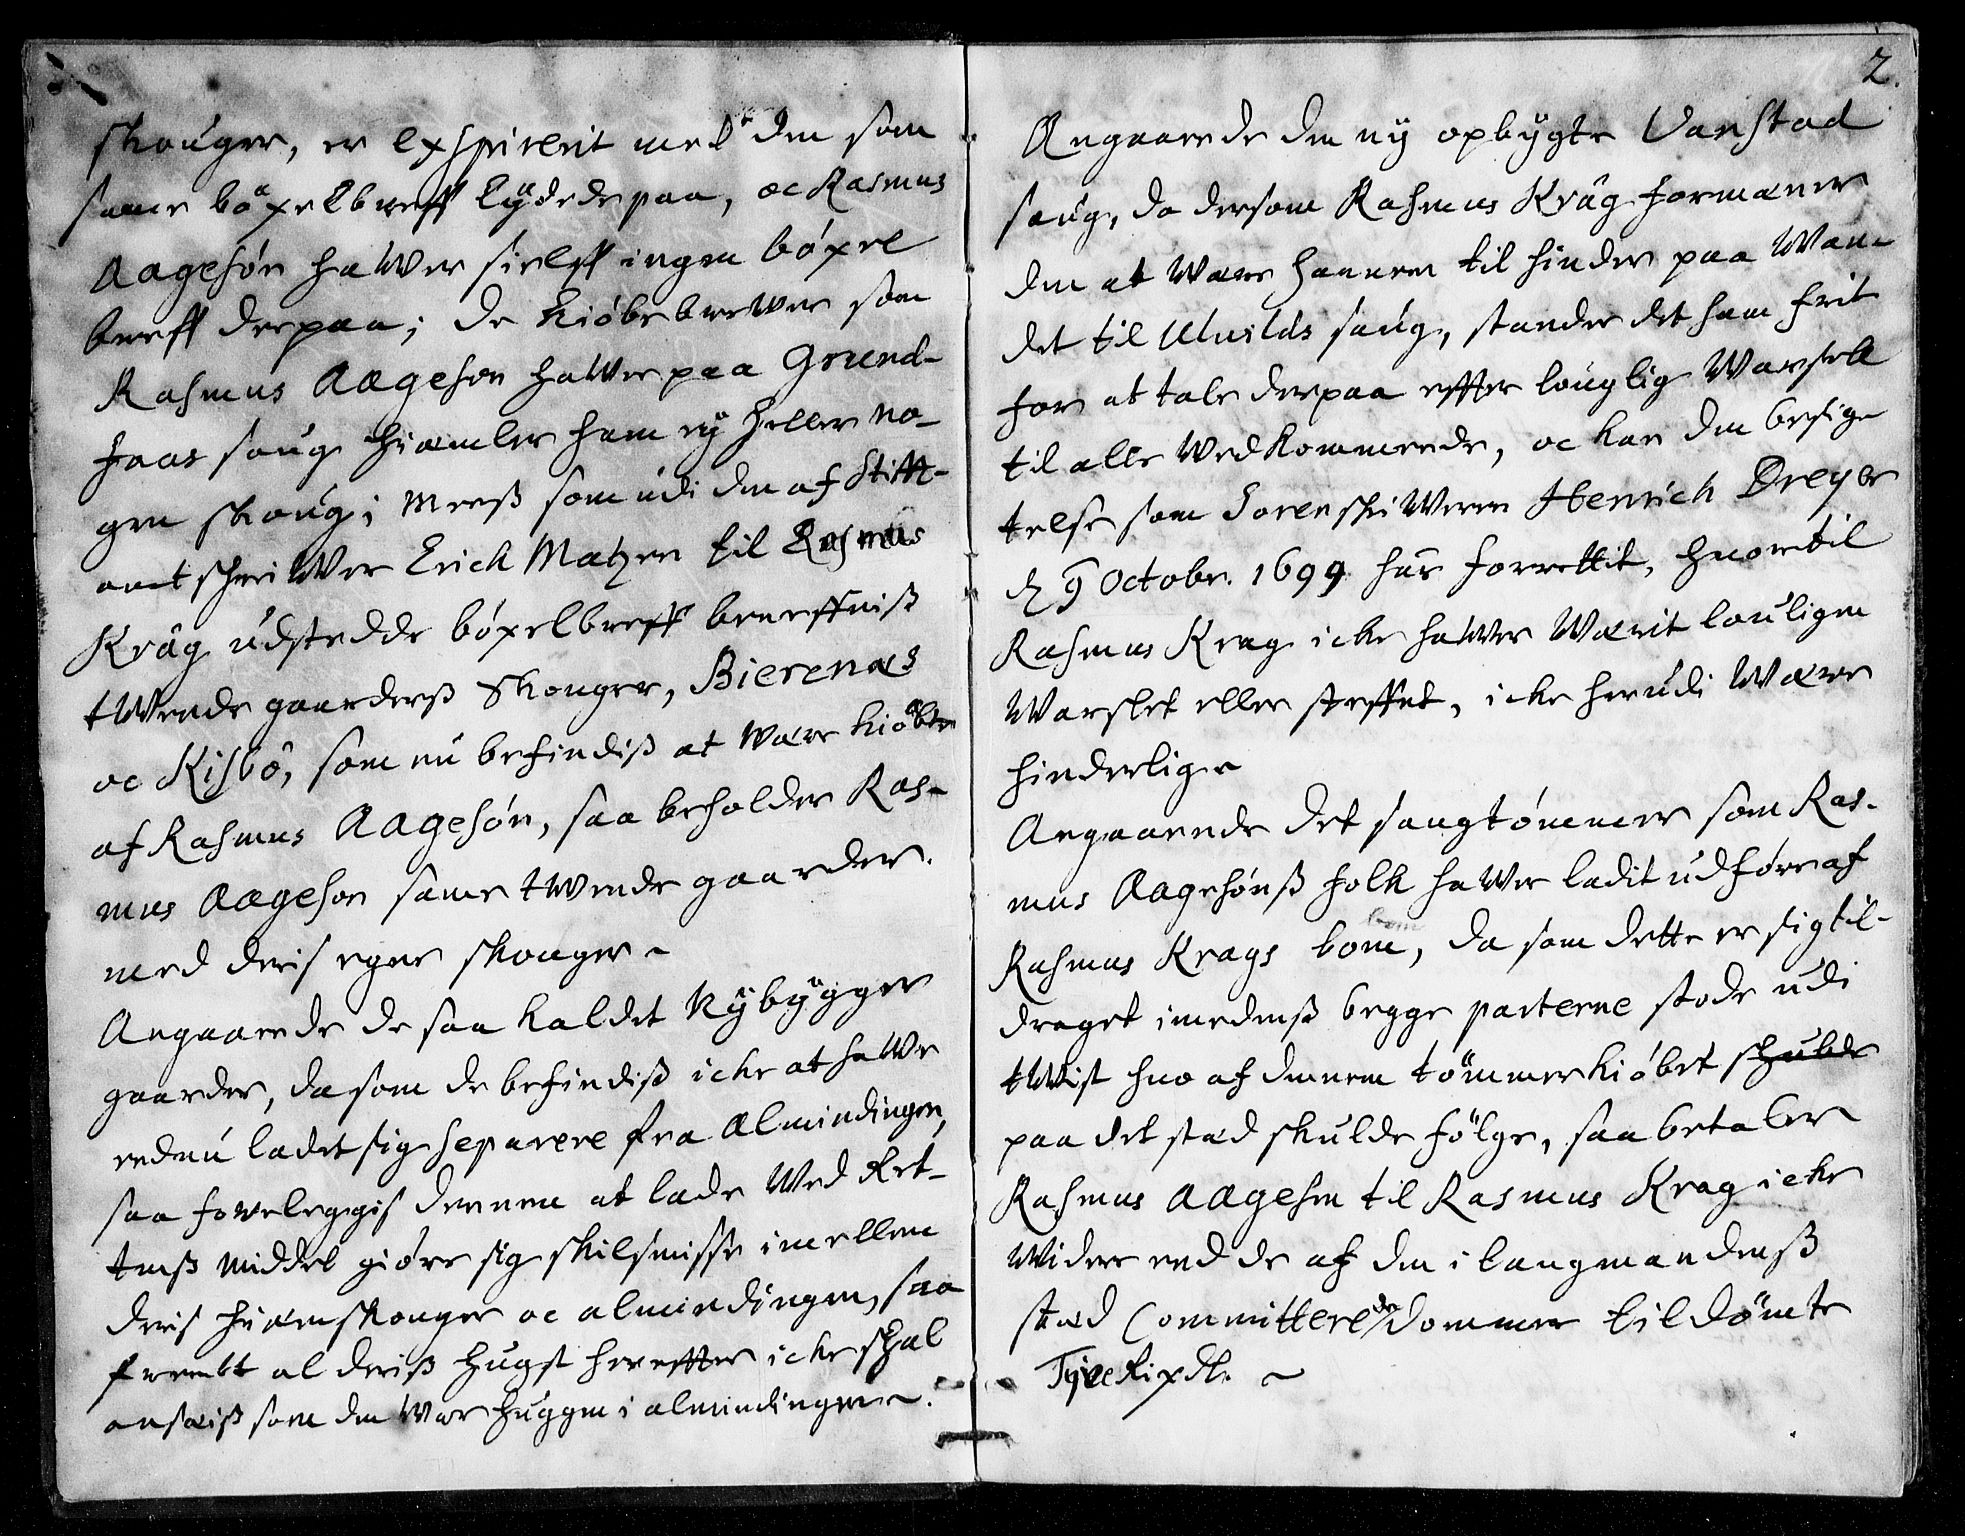 skouger, er exspirerit med den som
samme böxelbreff lÿdede paa, oc Rasmus
Aagesön haWer sielff ingen böxel
breff derpaa; de kiöbebreWer som
Rasmus Aagesøn haWer paa Grund-
faas saug hiemler ham eÿ heller no-
gen skoug; Meeß som udi den af Stifft-
amtschriWer Erich Matzen til Rasmus
Krag udstedde böxelbreff beneffniß
tWende gaarderß Skouger, Bierenæs
oc Kisbö, som nu befindiß at Wære kiöbte
af Rasmus Aagesøn, saa beholder Ras-
mus Aagesøn samme tWende gaarder
med deris egne skouger
Angaaende de saa kaldet Nÿbÿgger
gaarder, da som de befindiß icke at haWe
endnu ladet sig separere fra Almindingen,
saa foreleggis dennem at lade Wed Ret-
tenß Middel giöre sig skilsmisse imellem
deris hiemskouger oc almindingen, saa
frembt al deriß hugst hereffter icke schal
ansæiß som den War huggen i almindingen.
2.
Angaaende den nÿ opbÿgte Vanstad
saug, da dersom Rasmus Krag formæner
den at Være hannem til hinder paa Wan-
det til Ulvilds saug, stander det ham frit
for at tale derpaa effter louglig Warsell
til alle Wedkommende, oc kan den besig-
telse som SorenskriWeren Henrich Dreyer
d 9 Octobr. 1699 har forrettit, hvortil
Rasmus Krag icke haWer Wærit louligen
Warslet eller steffnet, icke herudi Wære
hinderlig
Angaaende det saugtömmer som Ras-
mus Aagesønß folk haWer ladit udföre af
Rasmus Krags bom, da som dette er sig til-
draget imedenß begge parterne stode udi
tWist hvo af dennem tömmerkiöbet schulde
paa det stæd skulde fölge, saa betaler
Rasmus Aagesen til Rasmus Krag icke
Widere end de af den i laugmandenß
stæd Committerede dommer tildömte
Tÿve Rixdlr.